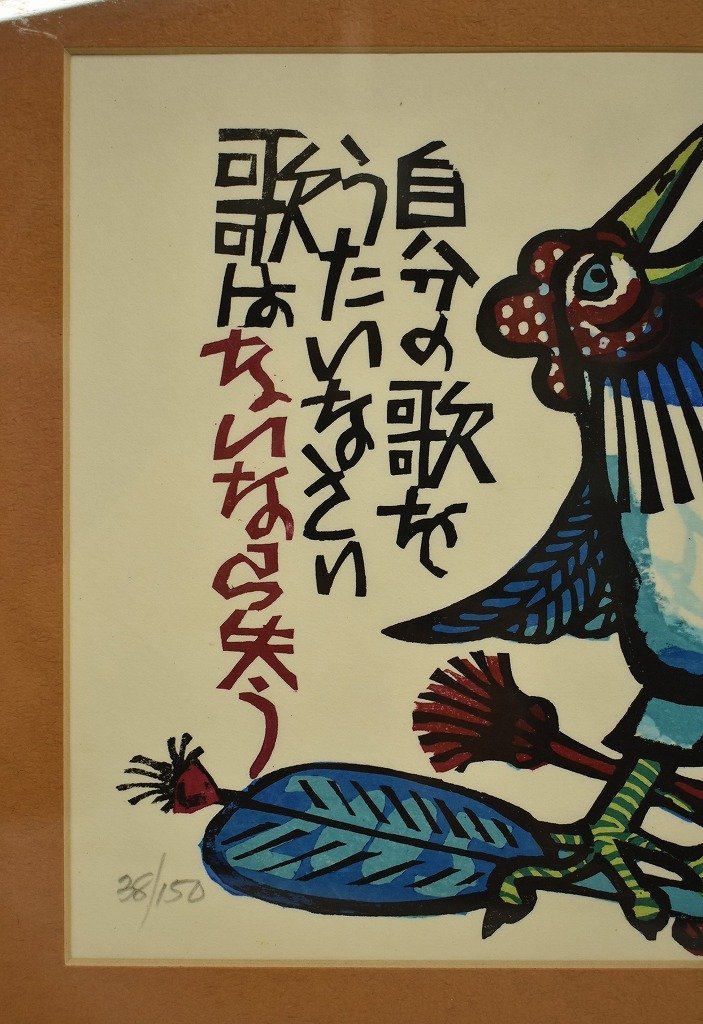 自分の歌を
うたいなさい
歌はないなら失う
38/150